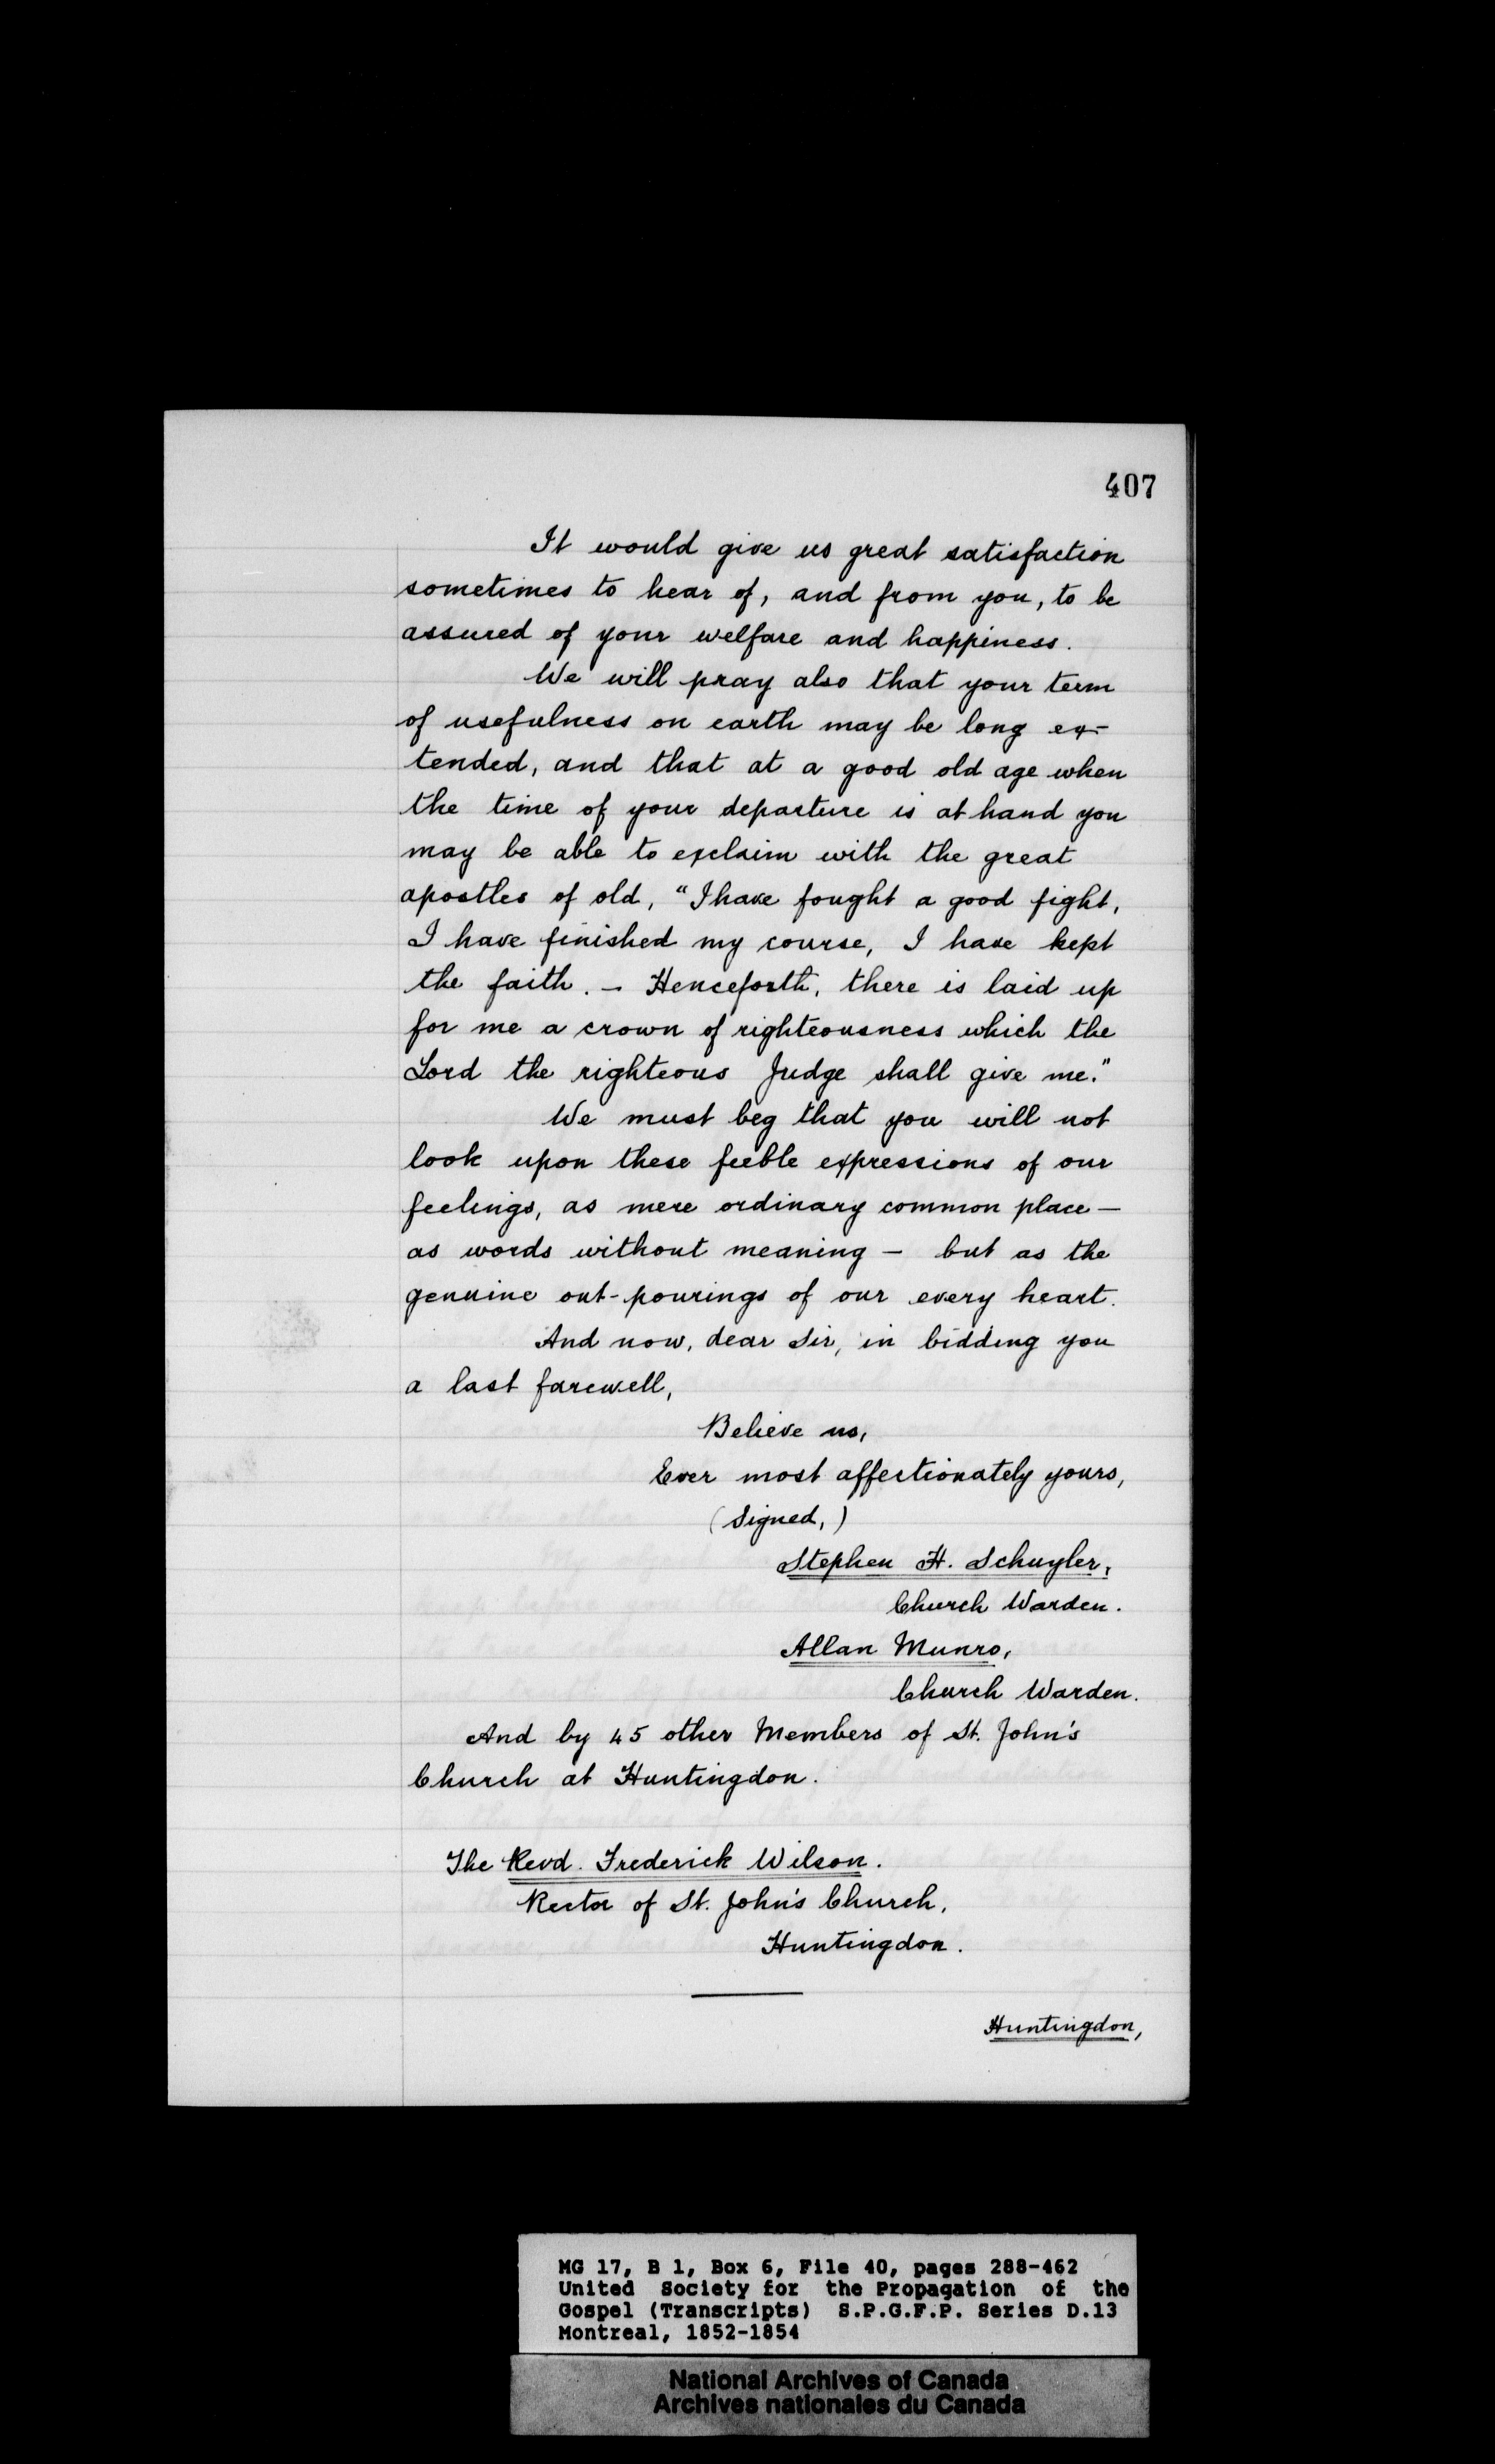 407
It would give us great satisfaction
sometimes to hear of, and from you, to be
assured of your welfare and happiness.
We will pray also that your term
of usefulness on earth may be long ex-
tended, and that at a good old age when
the time of your departure is at hand you
may be able to exclaim with the great
apostles of old, "I have fought a good fight,
I have finished my course, I have kept
the faith. - Henceforth, there is laid up
for me a crown of righteousness which the
Lord the righteous Judge shall give me."
We must beg that you will not
look upon these feeble expressions of our
feelings, as mere ordinary common place—
as words without meaning — but as the
genuine out-pourings of our every heart.
And now, dear Sir, in bidding you
a last farewell,
Believe us,
Ever most affectionately yours,
(Signed,)
Stephen H. Schuyler,
Church Warden.
Allan Munro,
Church Warden.
And by 45 other Members of St. John's
Church at Huntingdon.
The Revd. Frederick Wilson.
Rector of St. John's Church,
Huntingdon.
Huntingdon,
MG 17, B 1, Box 6, File 40, pages 288-462
United Society for the Propagation of the
Gospel (Transcripts) S.P.G.F.P. Series D.13
Montreal, 1852-1854
National Archives of Canada
Archives nationales du Canada